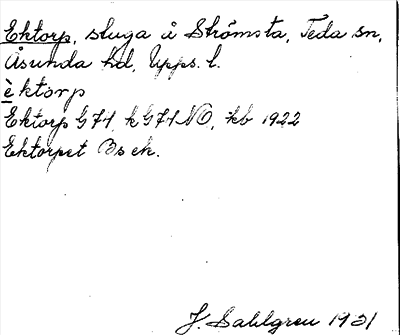 Ektorp, stuga å Strömsta, Teda sn,
Åsunda hd, Upps. l.
èktorp
Ektorp G71, k G71 NO, kb 1922
Ektorpet Bs ek.
J. Sahlgren 1931